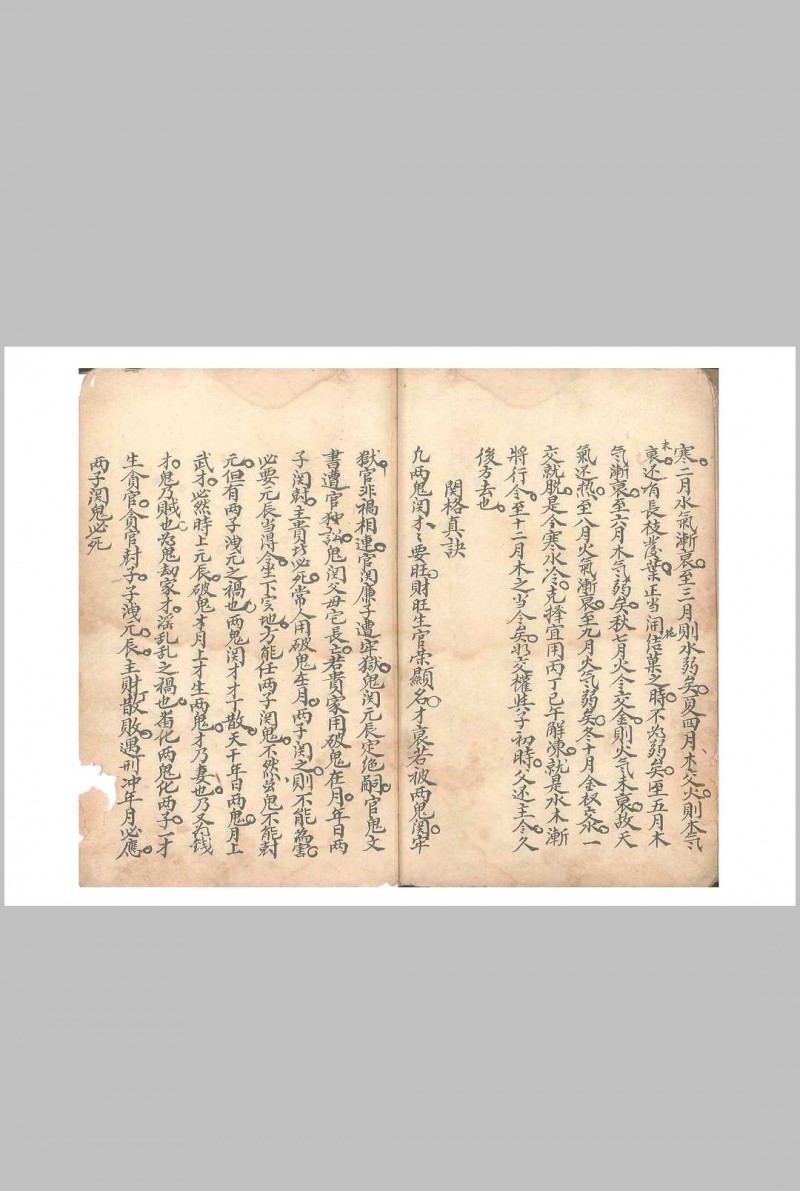 寒二月水氣漸衰至三月則水弱矣夏四月木交火則木气
未衰还有長枝發葉正当開花結菓之時不為弱矣至五月木
气漸衰至六月木气弱矣秋七月火令交金則火气未衰故天
氣还热至八月火氣漸衰至九月火气弱矣冬十月金权交水一
交就脱是令寒水冷克擇宜用丙丁巳午解凍就是水木漸
將行令至十二月木之当令矣交權些子初時父还主令久
後方去也
関格真訣
凡两鬼関才才要旺財旺生官荣顯名才衰若被两鬼関牢
獄官非禍相連官関廉子遭牢獄鬼関元辰定绝嗣官鬼文
書遭官訟鬼関父母宅長亡若貴家用破鬼在月年日两
子関封主貴巧必死常人用破鬼在月两子関之則不能為害
必要元辰当得令坐下实地方能任两子関鬼不然鬼不能封
元但有两子洩元之禍也两鬼関才才丁散天干年日两鬼月上
武才必然時上元辰破鬼才月上才生两鬼才乃妻也乃又為錢
才鬼乃賊也為鬼劫家才淫乱乱之禍也若化两鬼化两子一才
生貪官貪官封子子洩元辰主財丁散敗遇刑冲年月必應
两子関鬼必死